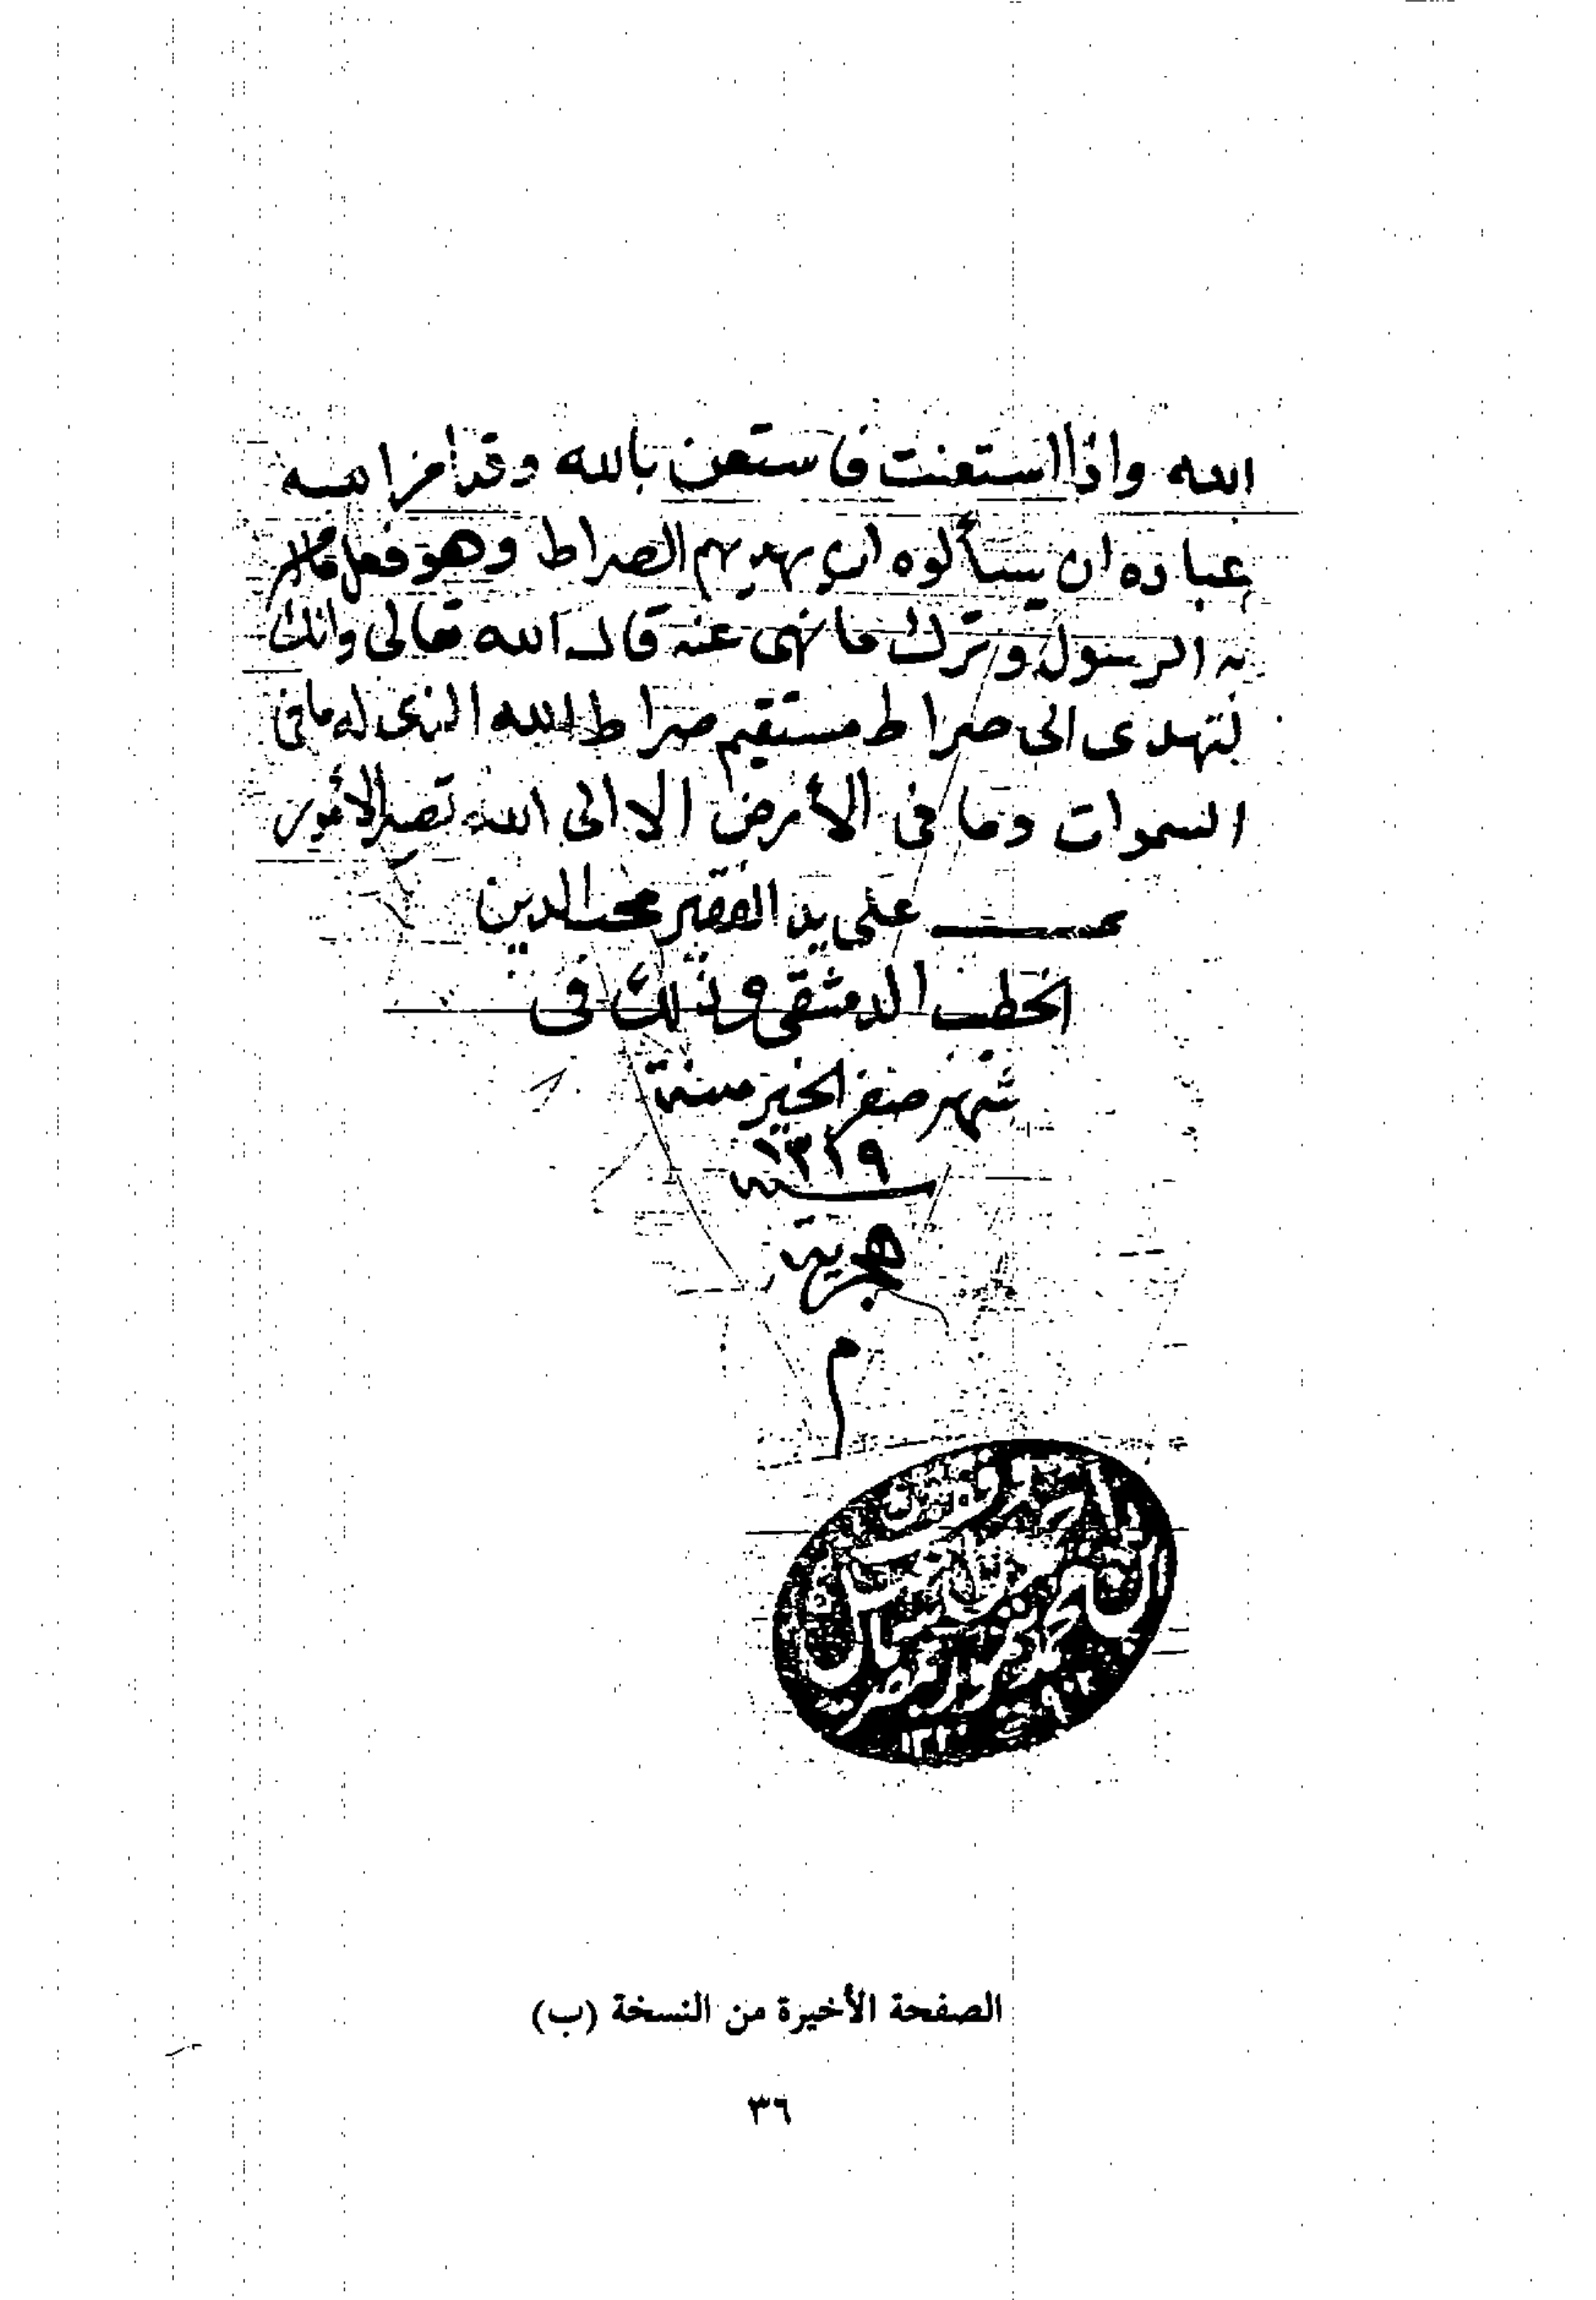 الله واذا استعنت فاستعن بالله وقد امر الله
عباده ان يسألوه ان يهديهم الصراط وهو فعل ما امر
به الرسول وترك ما نهى عنه قال الله تعالى وانك
لتهدى الى صراط مستقيم صراط الله الذى له ما فى
السموات وما فى الأرض الا الى الله تصير الأمور
على يد الفقير محب الدين
الخطيب الدمشقى وذلك فى
شهر صفر الخير سنة
١٣١٩
هجرية
م
الصفحة الأخيرة من النسخة (ب)
٣٦